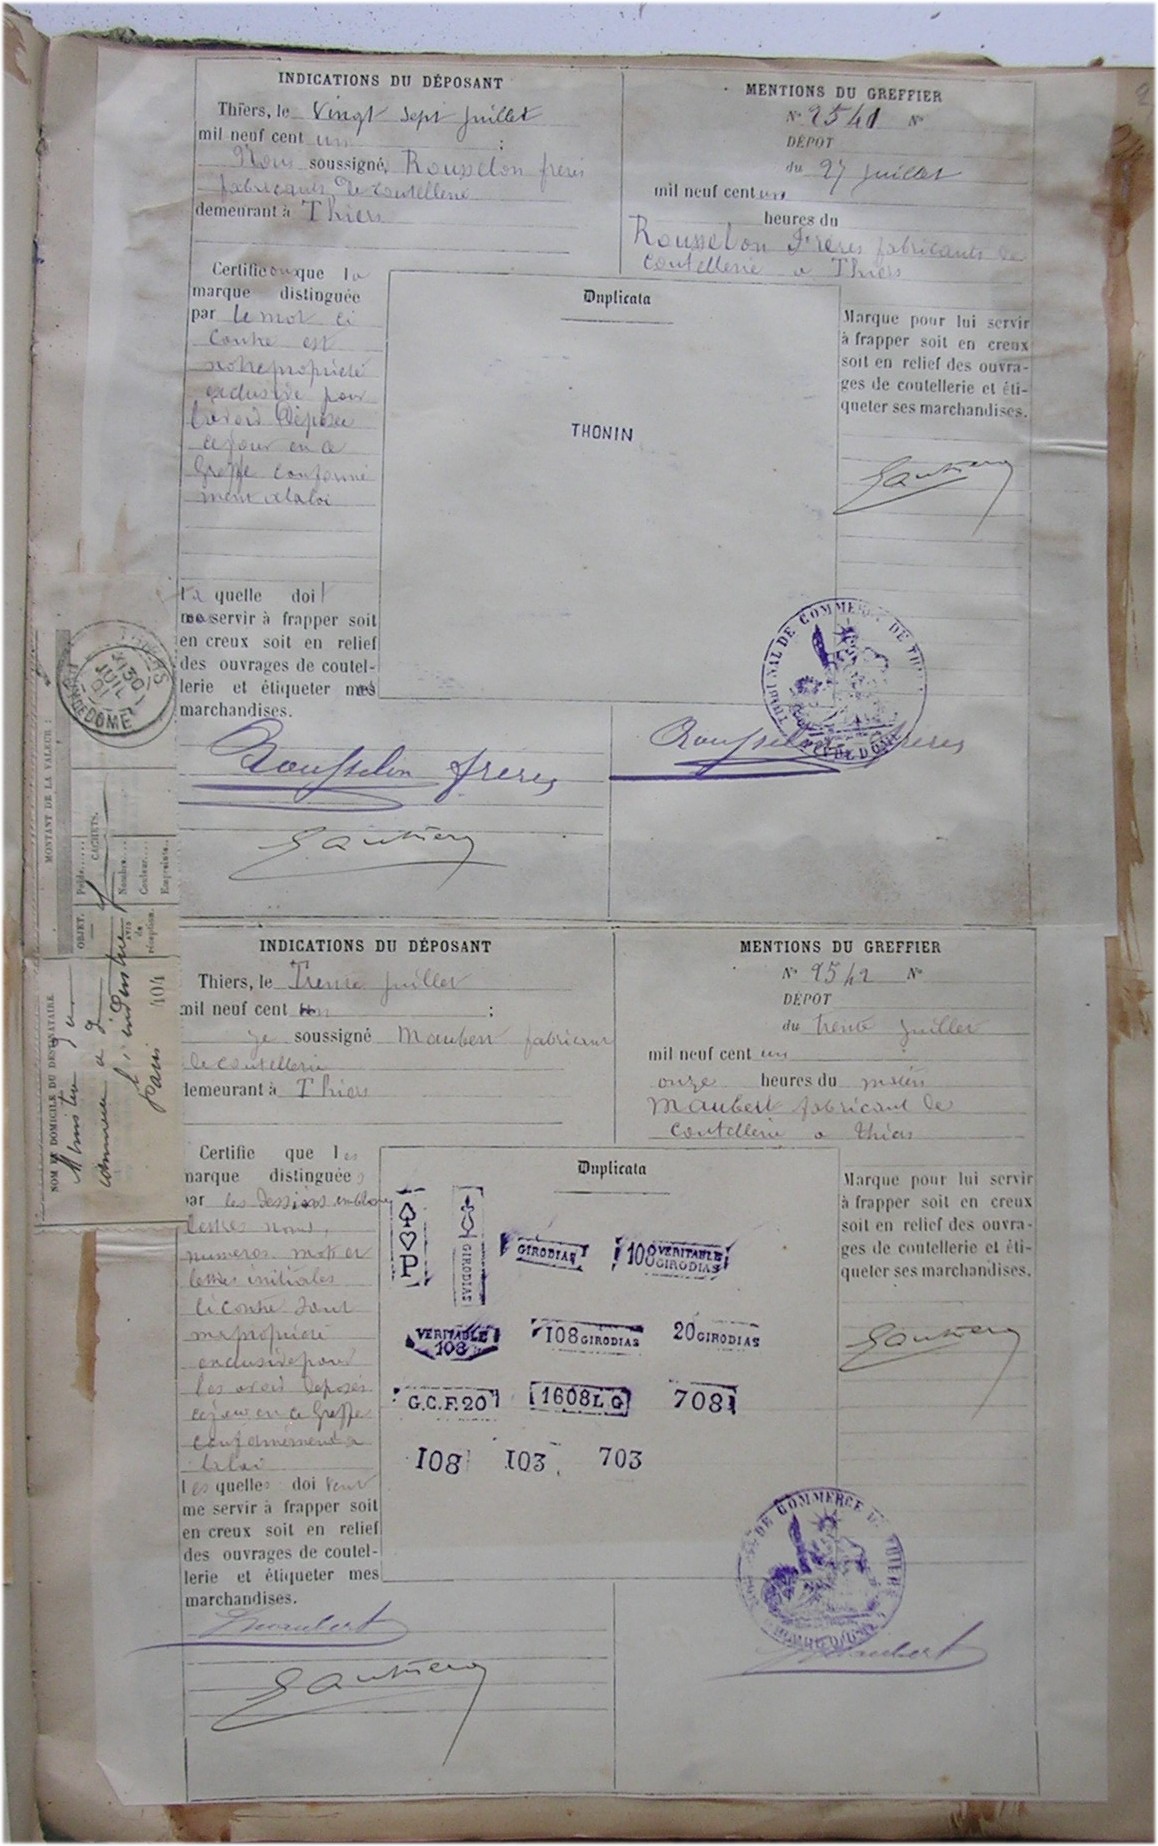 INDICATIONS DU DÉPOSANT
Thiers, le Vingt Sept juillet
mil neuf cent un ;
Nous soussigné, Rousselon frères
fabricants de coutellerie
demeurant à Thiers
MENTIONS DU GREFFIER
N° 2541 N°
DÉPOT
du 27 juillet
mil neuf cent un
heures du
Rousselon Frères fabricants de
coutellerie a Thiers
Certifions que la
marque distinguée
par le mot ci
contre est
notre propriété
exclusive pour
l'avoir déposée
ce jour en ce
Greffe conformé
ment a la loi
la quelle doit
nous servir à frapper soit
en creux soit en relief
des ouvrages de coutel-
lerie et étiqueter nos
marchandises.
Duplicata
THONIN
Marque pour lui servir
à frapper soit en creux
soit en relief des ouvra-
ges de coutellerie et éti-
queter ses marchandises.
TRIBUNAL DE COMMERCE DE THI
PUY DE DOME
Rousselon frères
Rousselon frères
30
JUIL
01
DOME
MONTANT DE LA VALEUR :
OBJET.
Poids
CACHETS.
Nombre
Couleur
Empreinte
avis
de
réception.
NOM ET DOMICILE DU DESTINATAIRE
Ministre du
commerce & de
l'industrie
Paris
404
INDICATIONS DU DÉPOSANT
Thiers, le Trente juillet
mil neuf cent un ;
je soussigné Maubert fabricant
de coutellerie
demeurant à Thiers
MENTIONS DU GREFFIER
N° 2542 N°
DÉPOT
du trente juillet
mil neuf cent un
onze heures du matin
Maubert fabricant de
coutellerie a Thiers
Certifie que les
marque distinguées
par les dessins emblèmes
lettres noms,
numéros mots et
lettres initiales
ci contre sont
ma propriété
exclusive pour
les avoir déposés
ce jour en ce Greffe
conformément a
la loi
les quelles doivent
me servir à frapper soit
en creux soit en relief
des ouvrages de coutel-
lerie et étiqueter mes
marchandises.
Duplicata
P
GIRODIAS
GIRODIAS
108 VERITABLE GIRODIAS
VERITABLE
108
108 GIRODIAS
20 GIRODIAS
G.C.F. 20
1608 L G
708
108
103
703
Marque pour lui servir
à frapper soit en creux
soit en relief des ouvra-
ges de coutellerie et éti-
queter ses marchandises.
DE COMMERCE DE THIERS
Maubert
Maubert